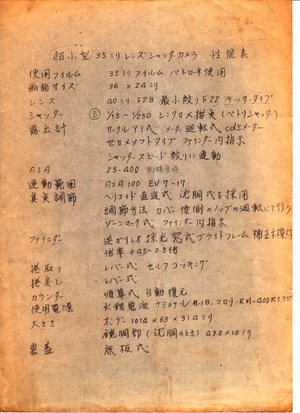 超小型 35ミリレンズシャッターカメラ 性能表
使用フイルム 35ミリフイルム パトローネ使用
画面サイズ 36×24ミリ
レンズ 40ミリ F2.8 最小絞りF22 テッサータイプ
シャッター B 1/15~1/250 シンクロX接点
露出計 サークルアイ式 メーター連動式 cdsメーター
ゼロメソットタイプ ファインダー内指示
シャッタースピード 絞りに連動
ASA 25-400
連動範囲 ASA100 EV7-17
焦点調節 ヘリコイド直進式 沈胴式を採用
調節方法 カバー後側のノッブの廻転にて行う
ゾーンマーク式 ファインダー内指示
ファインダー 逆ガリレオ採光窓式ブライトフレーム 補正マーク付
倍率 0.45~0.5倍
捲取り レバー式 セルフコッキング
捲戻し レバー式
カウンター 順算式 自動復元
使用電源 水銀電池
大きさ ボデー 101.4×63×31.4ミリ
鏡胴部(沈胴のとき) 43.0×10ミリ
裏蓋 底板式